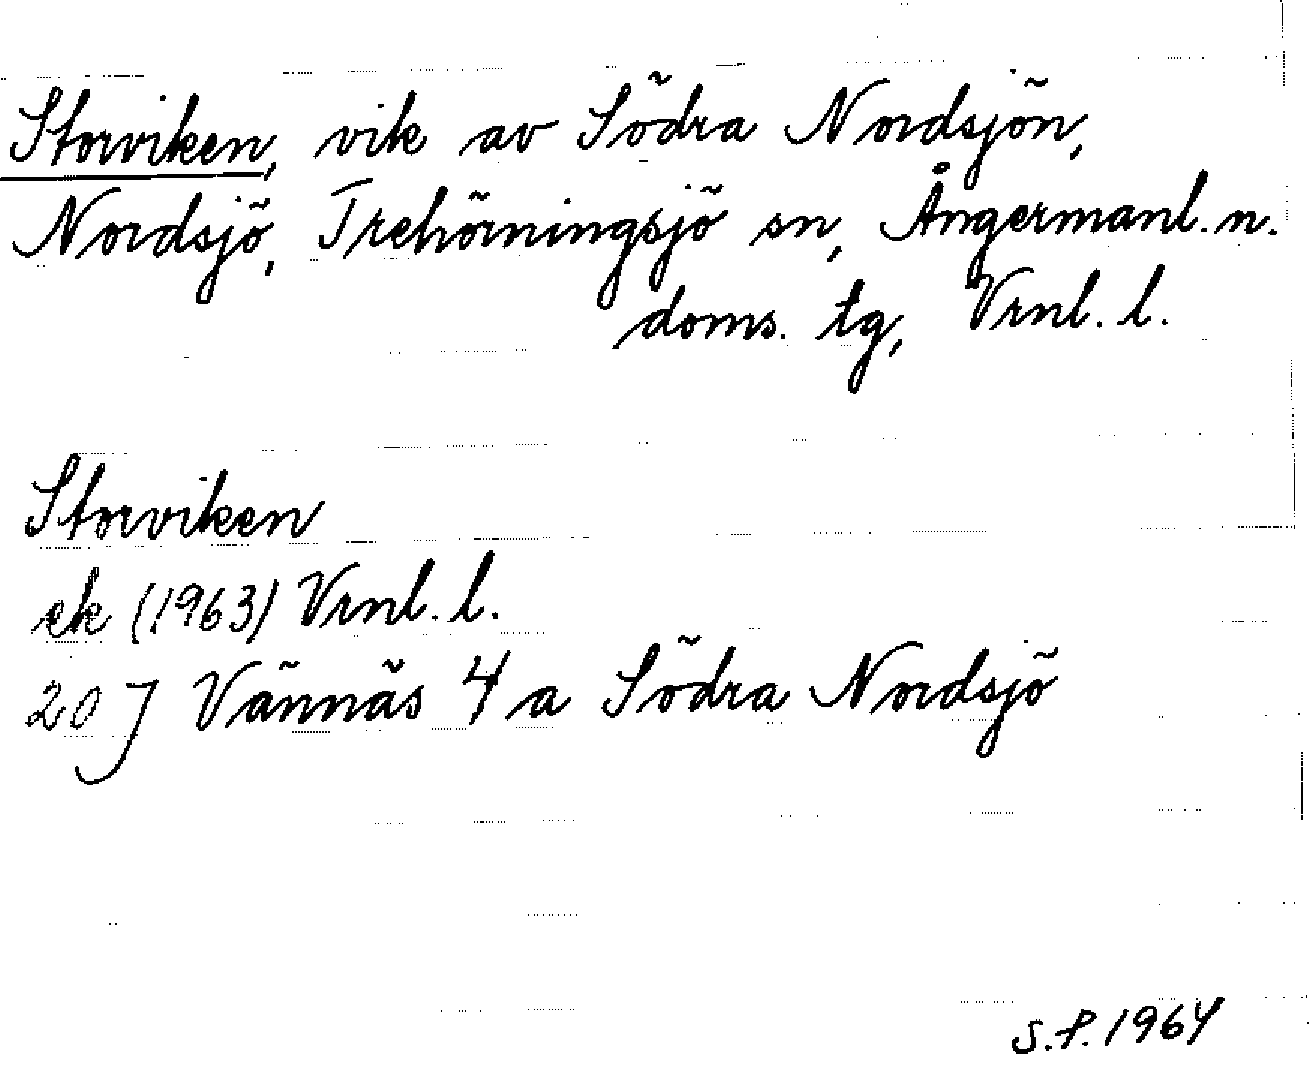 Storviken, vik av Södra Nordsjön,
Nordsjö, Trehörningsjö sn, Ångermanl. n.
doms. tg, Vrnl. l.
Storviken
ek (1963) Vrnl. l.
20 J Vännäs 4 a Södra Nordsjö
S.P. 1964